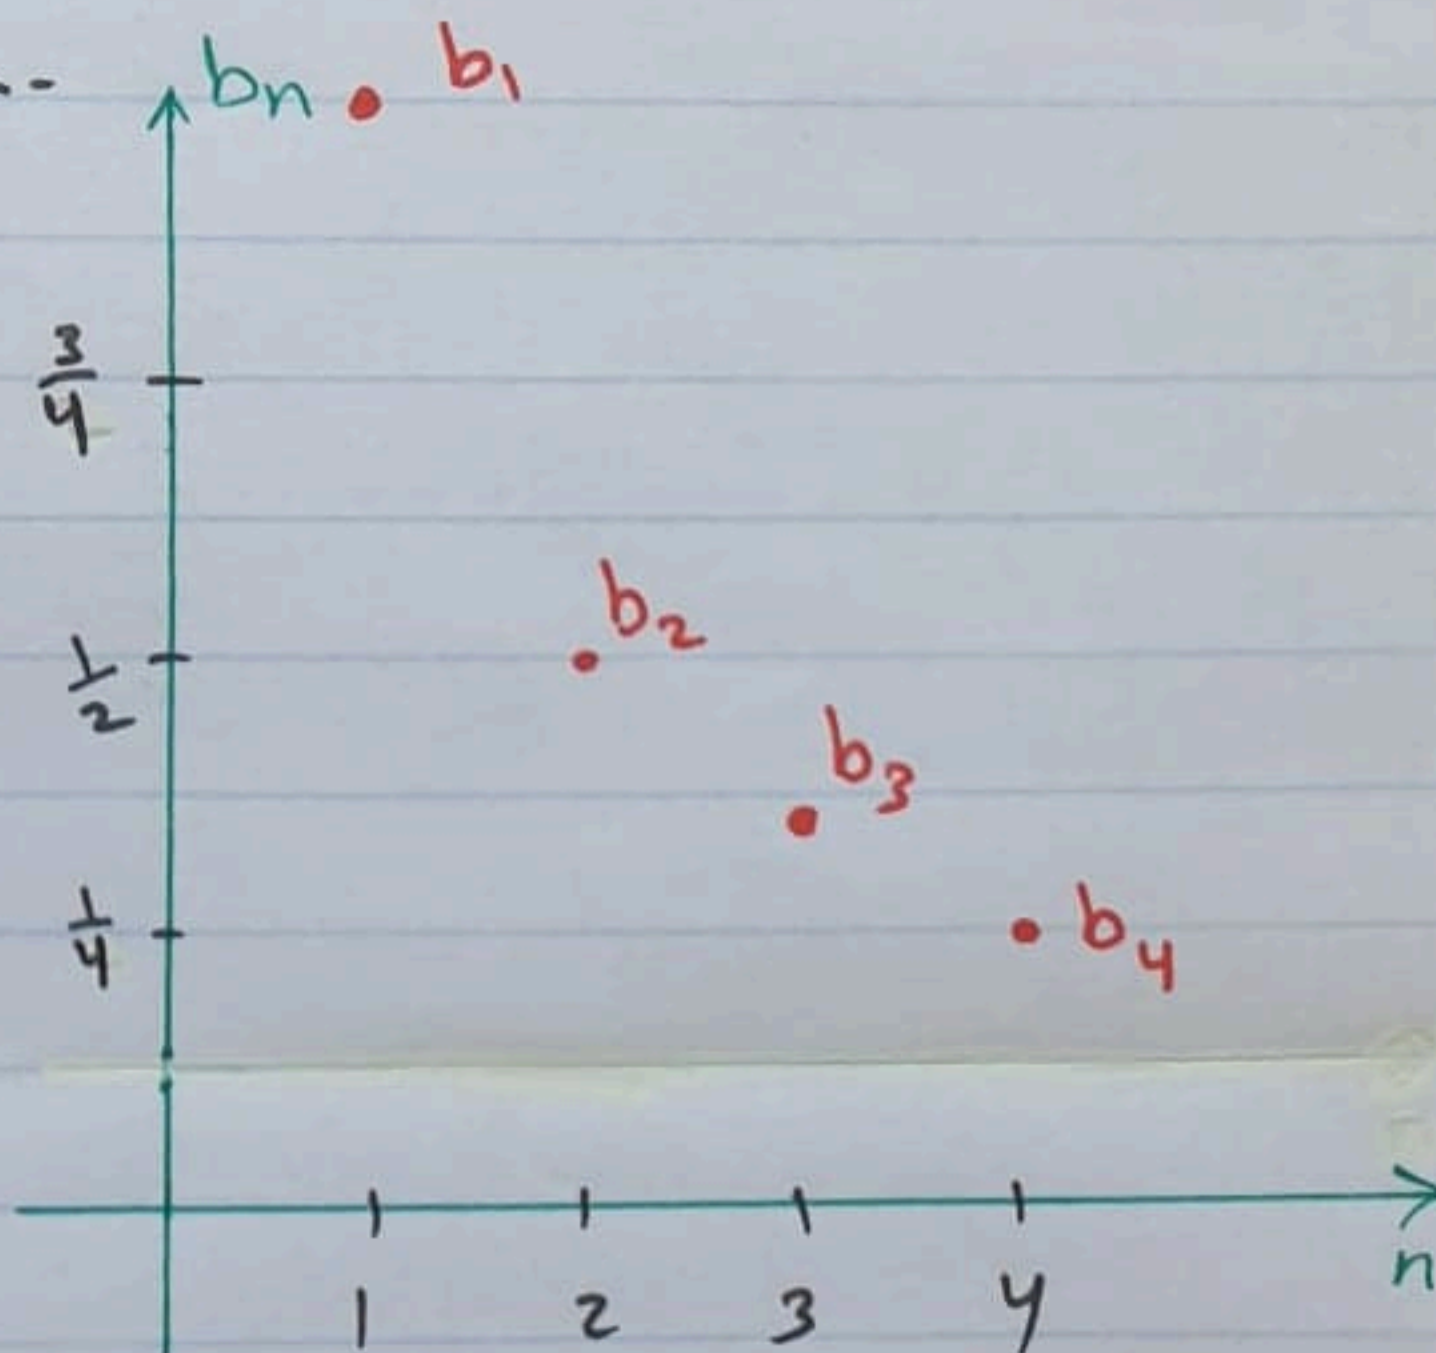 bn
b1
3/4
b2
1/2
b3
1/4
b4
n
1 2 3 4